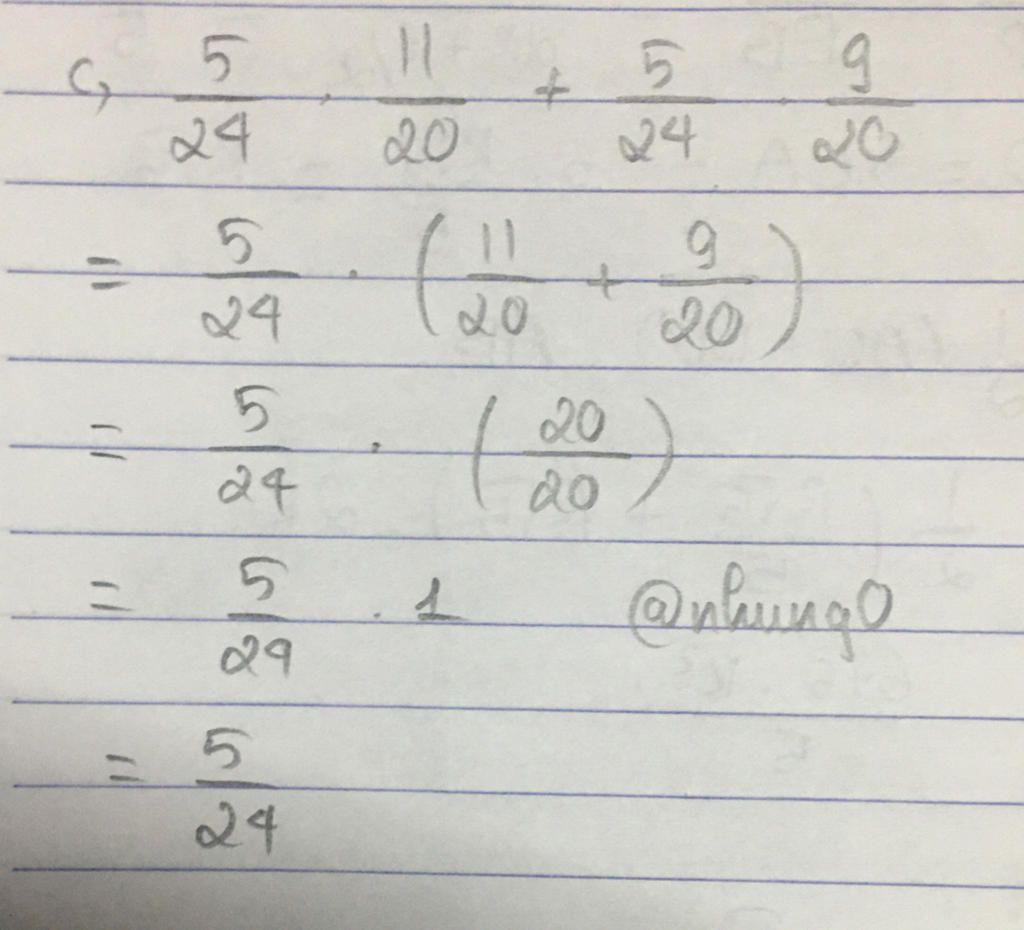 c, 5/24 . 11/20 + 5/24 . 9/20
= 5/24 . (11/20 + 9/20)
= 5/24 . (20/20)
= 5/24 . 1 @nhung0
= 5/24